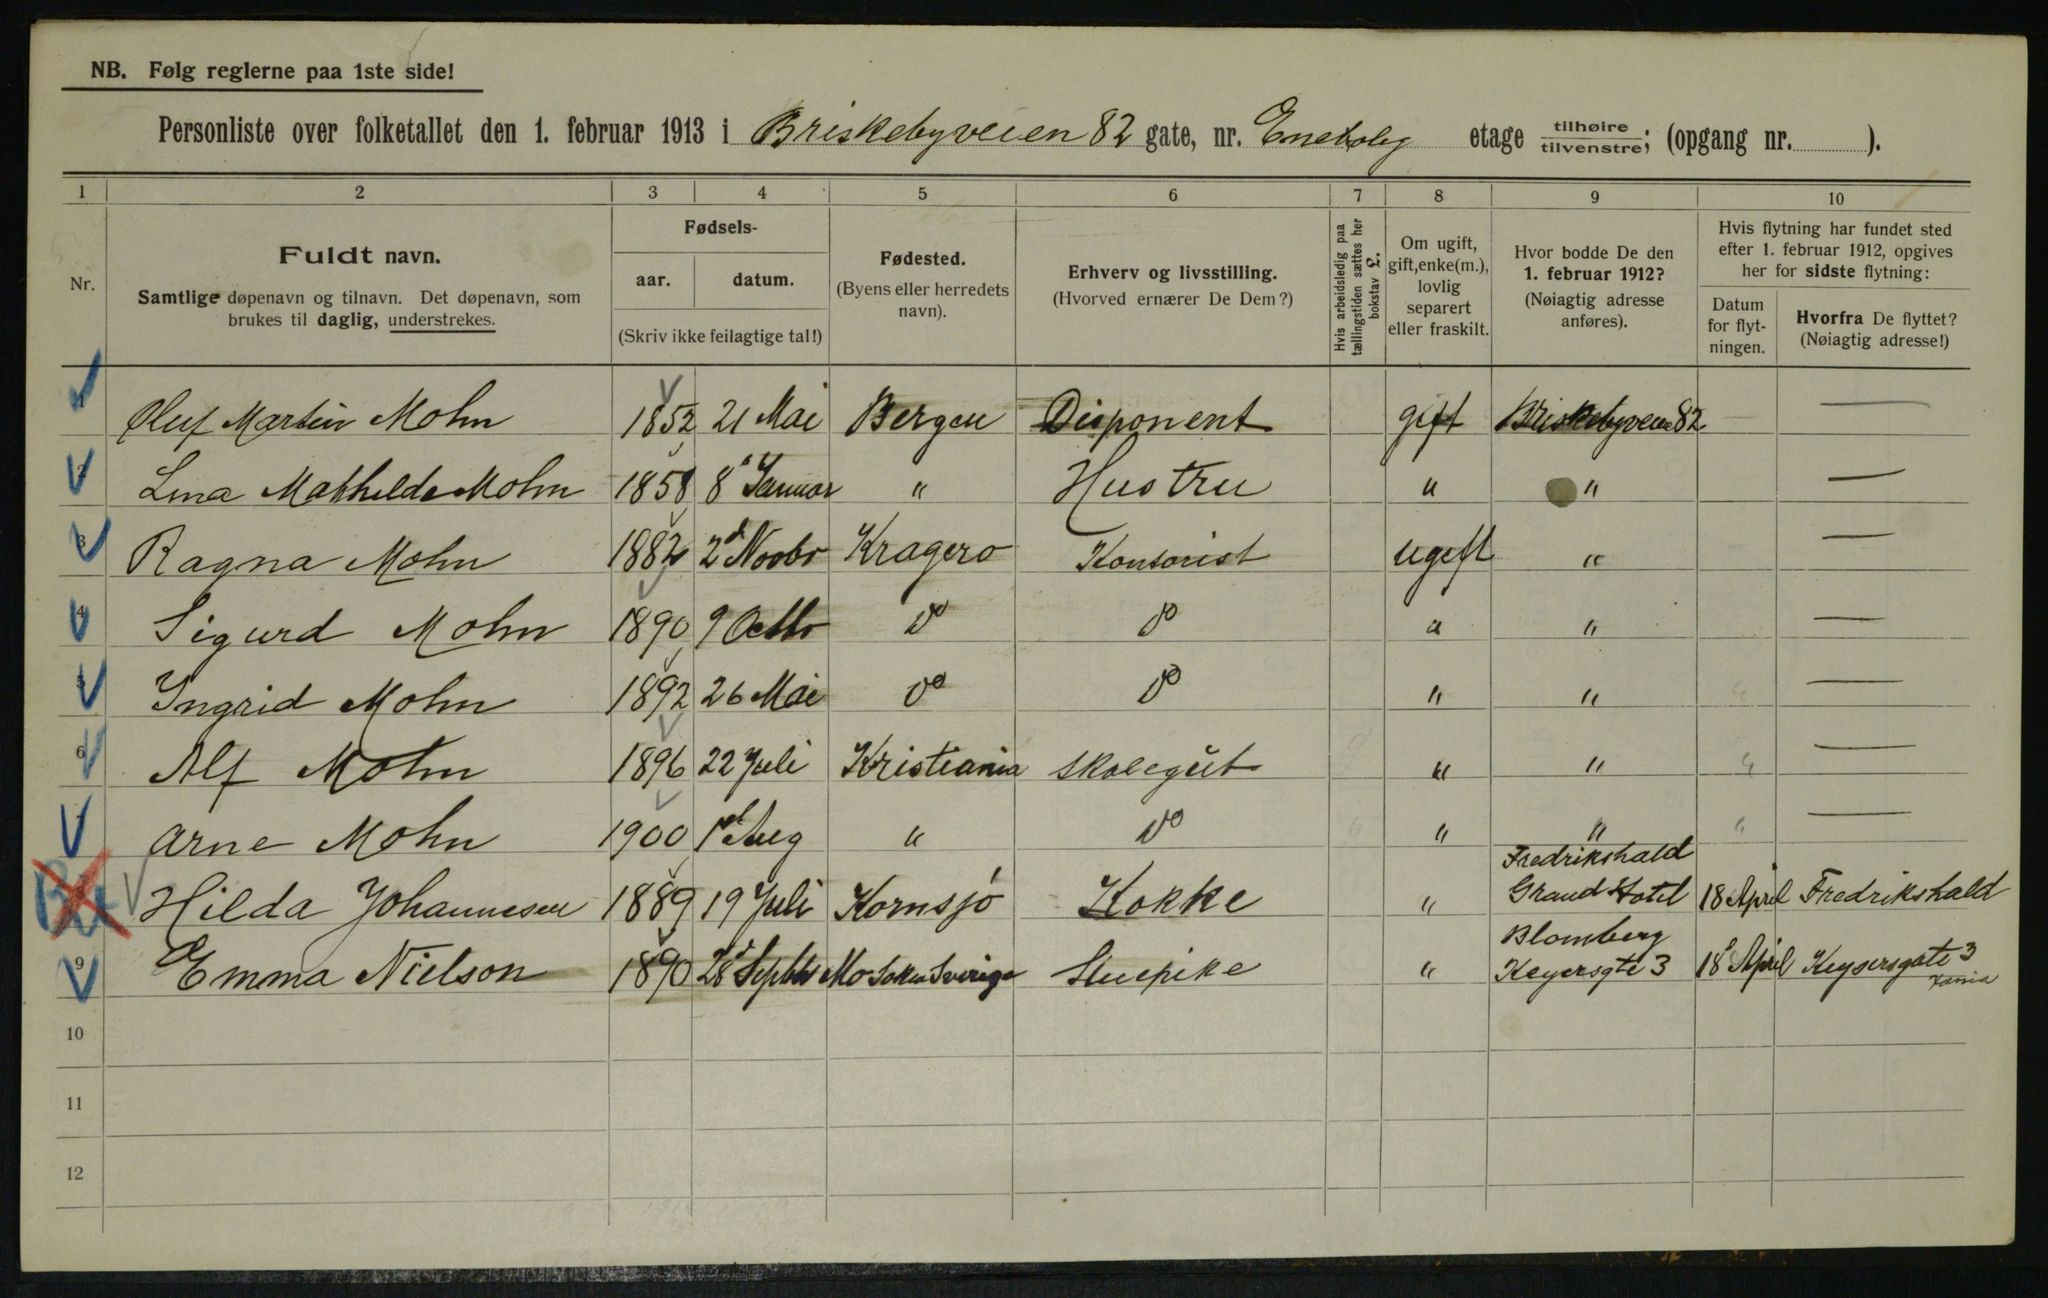 NB. Følg reglerne paa 1ste side!
Personliste over folketallet den 1. februar 1913 i Briskebyveien 82 gate, nr. Enebolig etage tilhøire / tilvenstre; (opgang nr. ).
1 2 3 4 5 6 7 8 9 10
Nr.
Fuldt navn.
Samtlige døpenavn og tilnavn. Det døpenavn, som
brukes til daglig, understrekes.
Fødsels-
aar. datum.
(Skriv ikke feilagtige tal!)
Fødested.
(Byens eller herredets
navn).
Erhverv og livsstilling.
(Hvorved ernærer De Dem?)
Hvis arbeidsledig paa
tællingstiden sættes her
bokstav L.
Om ugift,
gift, enke(m.),
lovlig
separert
eller fraskilt.
Hvor bodde De den
1. februar 1912?
(Nøiagtig adresse
anføres).
Hvis flytning har fundet sted
efter 1. februar 1912, opgives
her for sidste flytning:
Datum
for flyt-
ningen.
Hvorfra De flyttet?
(Nøiagtig adresse!)
1 Oluf Martin Mohn 1852 21 Mai Bergen Disponent gift Briskebyveien 82 —
2 Lina Mathilde Mohn 1858 8' Januar " Hustru " " —
3 Ragna Mohn 1882 2d Novbr Kragerø Kontorist ugift " —
4 Sigurd Mohn 1890 9 Octbr do do " " —
5 Yngrid Mohn 1892 26 Mai do do " " —
6 Alf Mohn 1896 22 Juli Kristiania skolegut " " —
7 Arne Mohn 1900 1' Aug " do " " —
Fredrikshald
8 Hilda Johannesen 1889 19 Juli Kornsjó Kokke " Grand Hotel 18 April Fredrikshald
Blomberg
9 Emma Nielson 1890 28d Septbr Mo Sokn Sverige Stuepike " Keyersgte 3 18d April Keysersgate 3
Kania
10
11
12